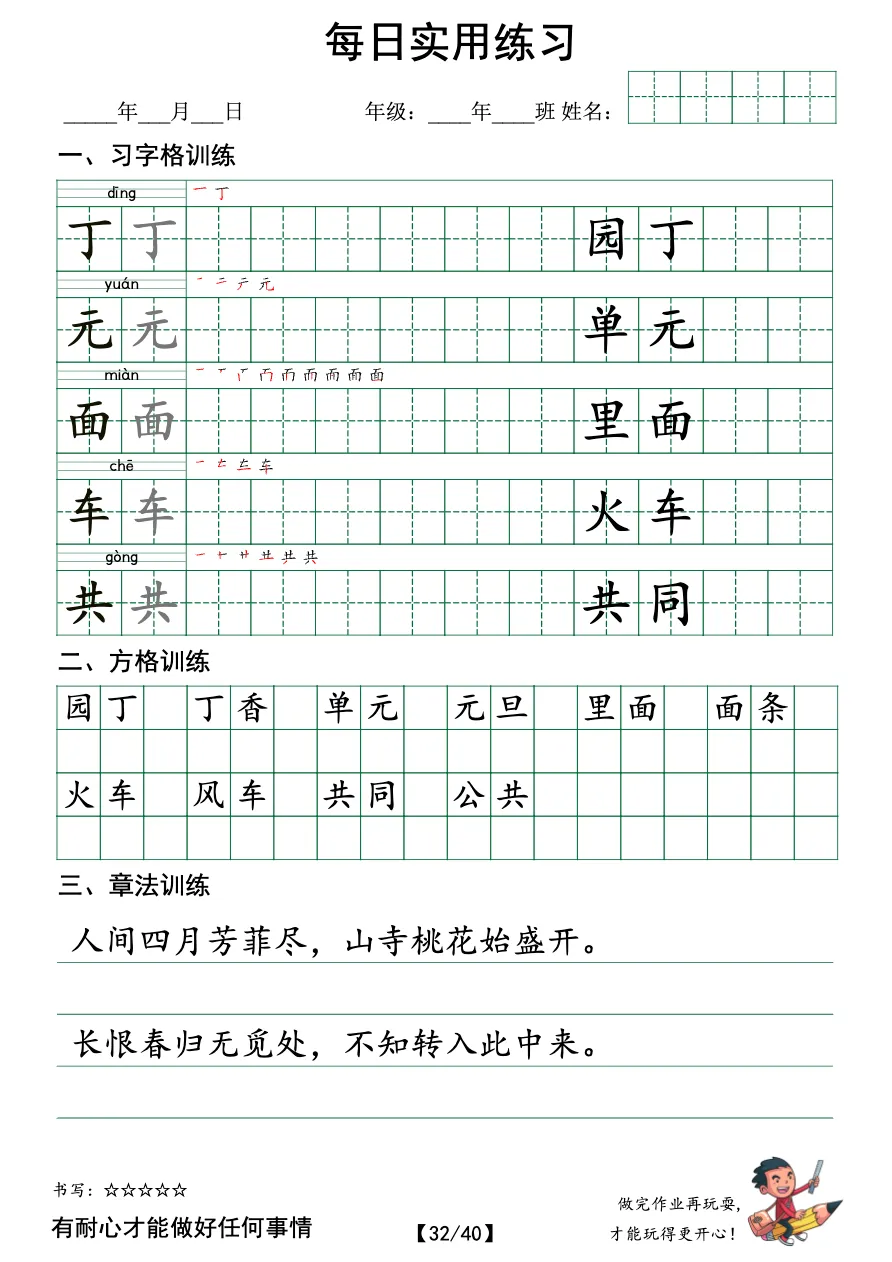 每日实用练习
_____年___月___日 年级：____年____班 姓名：
一、习字格训练
dīng 一 丁
丁 丁 园 丁
yuán 一 二 テ 元
元 元 单 元
miàn
面 面 里 面
chē
车 车 火 车
gòng
共 共 共 同
二、方格训练
园丁 丁香 单元 元旦 里面 面条
火车 风车 共同 公共
三、章法训练
人间四月芳菲尽，山寺桃花始盛开。
长恨春归无觅处，不知转入此中来。
书写：☆☆☆☆☆
有耐心才能做好任何事情
【32/40】
做完作业再玩耍，
才能玩得更开心！